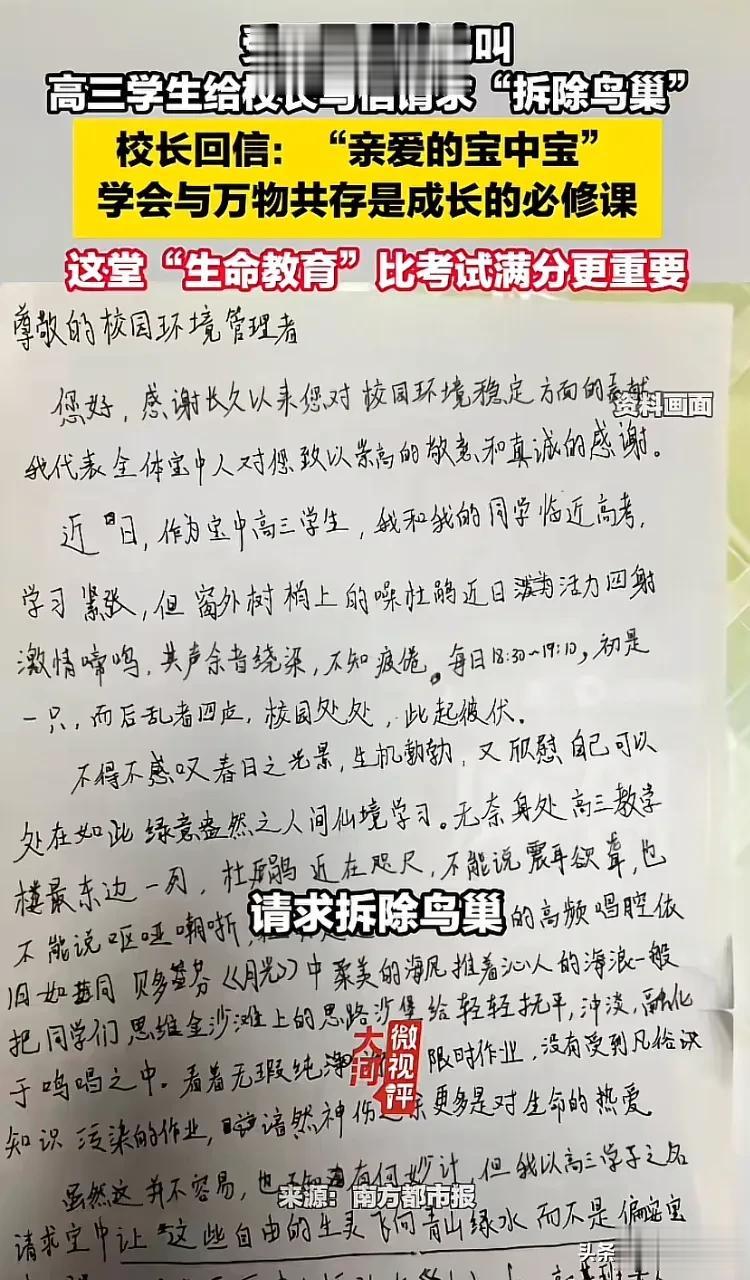 叫
高三学生给校长写信请求“拆除鸟巢”
校长回信：“亲爱的宝中宝”
学会与万物共存是成长的必修课
这堂“生命教育”比考试满分更重要
尊敬的校园环境管理者
您好，感谢长久以来您对校园环境稳定方面的贡献
资料画面
我代表全体宝中人对您致以崇高的敬意和真诚的感谢。
近日，作为宝中高三学生，我和我的同学临近高考，
学习紧张，但窗外树梢上的噪杜鹃近日活力四射
激情啼鸣，其声余音绕梁，不知疲倦。每日18:30~19:10，初是
一只，而后乱者四应，校园处处，此起彼伏。
不得不感叹春日之光景，生机勃勃，又欣慰自己可以
处在如此绿意盎然之人间仙境学习。无奈身处高三教学
楼最东边一列，杜鹃近在咫尺，不能说震耳欲聋，也
不能说呕哑嘲哳，
请求拆除鸟巢
的高频唱腔依
旧如同贝多芬《月光》中柔美的海风推着沁人的海浪一般
把同学们思维金沙滩上的思路沙堡给轻轻抚平，冲淡，融化
于鸣唱之中。看着无瑕纯
限时作业，没有受到凡俗识
大河
微视评
知识污染的作业，黯然神伤之余更多是对生命的热爱。
虽然这并不容易，也不知道有何妙计，但我以高三学子之名
来源：南方都市报
请求宝中让这些自由的生灵飞向青山绿水而不是偏安宝
头条